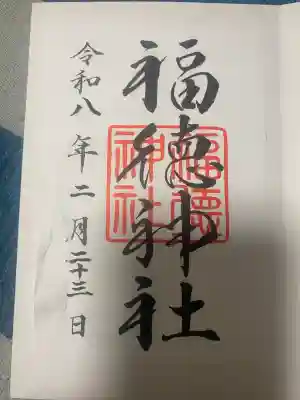 福徳神社
令和八年二月二十三日
福徳
神社